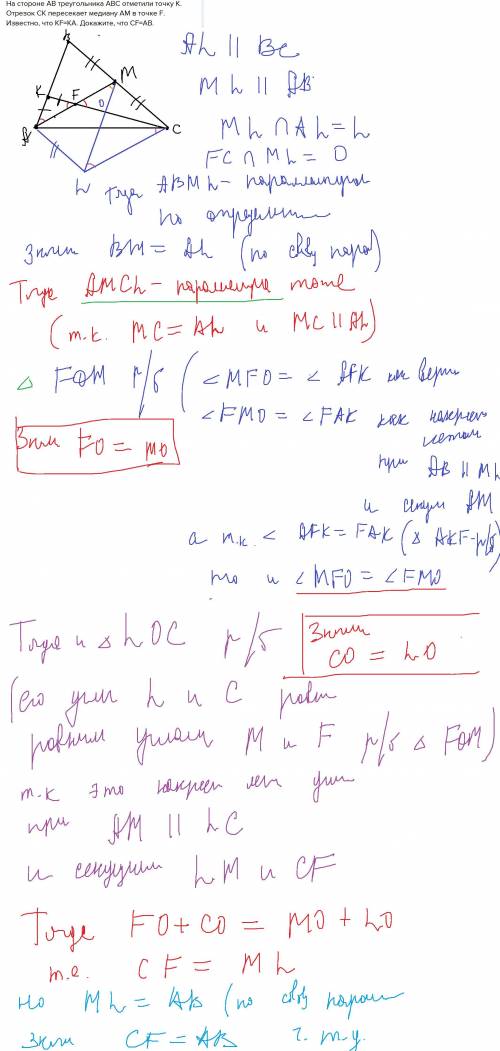 На стороне АВ треугольника АВС отметили точку К.
Отрезок СК пересекает медиану АМ в точке F.
Известно, что KF=KA. Докажите, что CF=AB.
B
M
K
F
O
A
C
L
AL || BC
ML || AB
ML ∩ AL = L
FC ∩ ML = O
Тогда ABML - параллелограм
по определению
Значит BM = AL (по св-ву парал)
Тогда AMCL - параллелограм тоже
(т.к. MC = AL и MC || AL)
△ FOM р/б
∠MFO = ∠AFK как верт
∠FMO = ∠FAK как накрест
лежащ
при AB || ML
и секущ AM
Значит FO = MO
а т.к. ∠ AFK = FAK (△ AKF - р/б)
то и ∠MFO = ∠FMO
Тогда и △ LOC р/б
Значит
CO = LO
(его углы L и C равны
равным углам M и F р/б △ FOM)
т.к это накрест леж углы
при AM || LC
и секущими LM и CF
Тогда FO + CO = MO + LO
т.е. CF = ML
но ML = AB (по св-ву парал
Значит CF = AB ч. т.д.